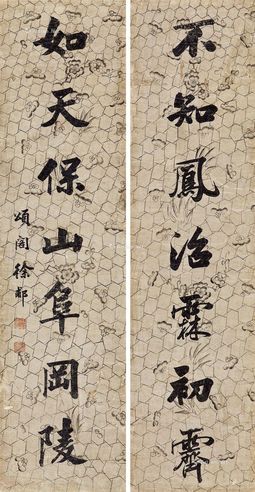 不知鳳沼霖初霽
如天保山阜岡陵
頌閣徐郙